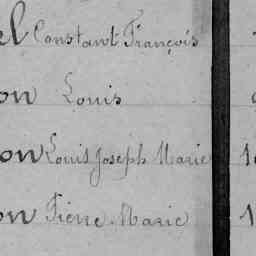 el Constant François
on Louis
on Louis Joseph Marie 1
on Pierre Marie 1